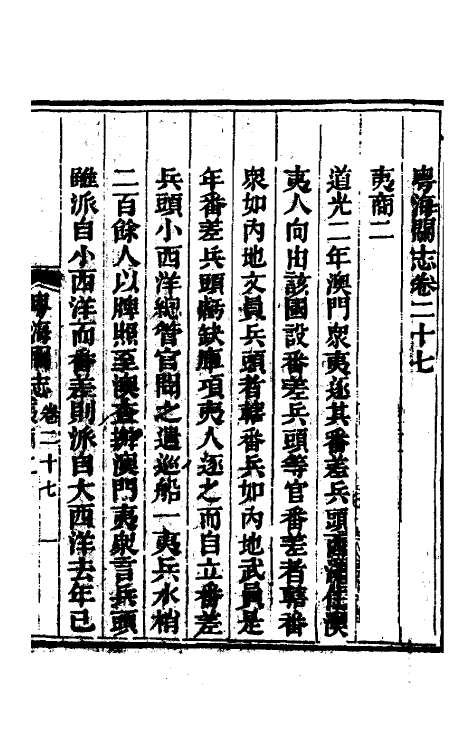 粵海關志卷二十七
夷商二
道光二年澳門衆夷逐其番差兵頭西洋住澳
夷人向由該國設番差兵頭等官番差者轄番
衆如內地文員兵頭者轄番兵如內地武員是
年番差兵頭虧缺庫項夷人逐之而自立番差
兵頭小西洋總管官聞之遣巡船一夷兵水梢
二百餘人以牌照至澳查辦澳門夷衆言兵頭
雖派自小西洋而番差則派自大西洋去年已
粵海關志 卷二十七 一